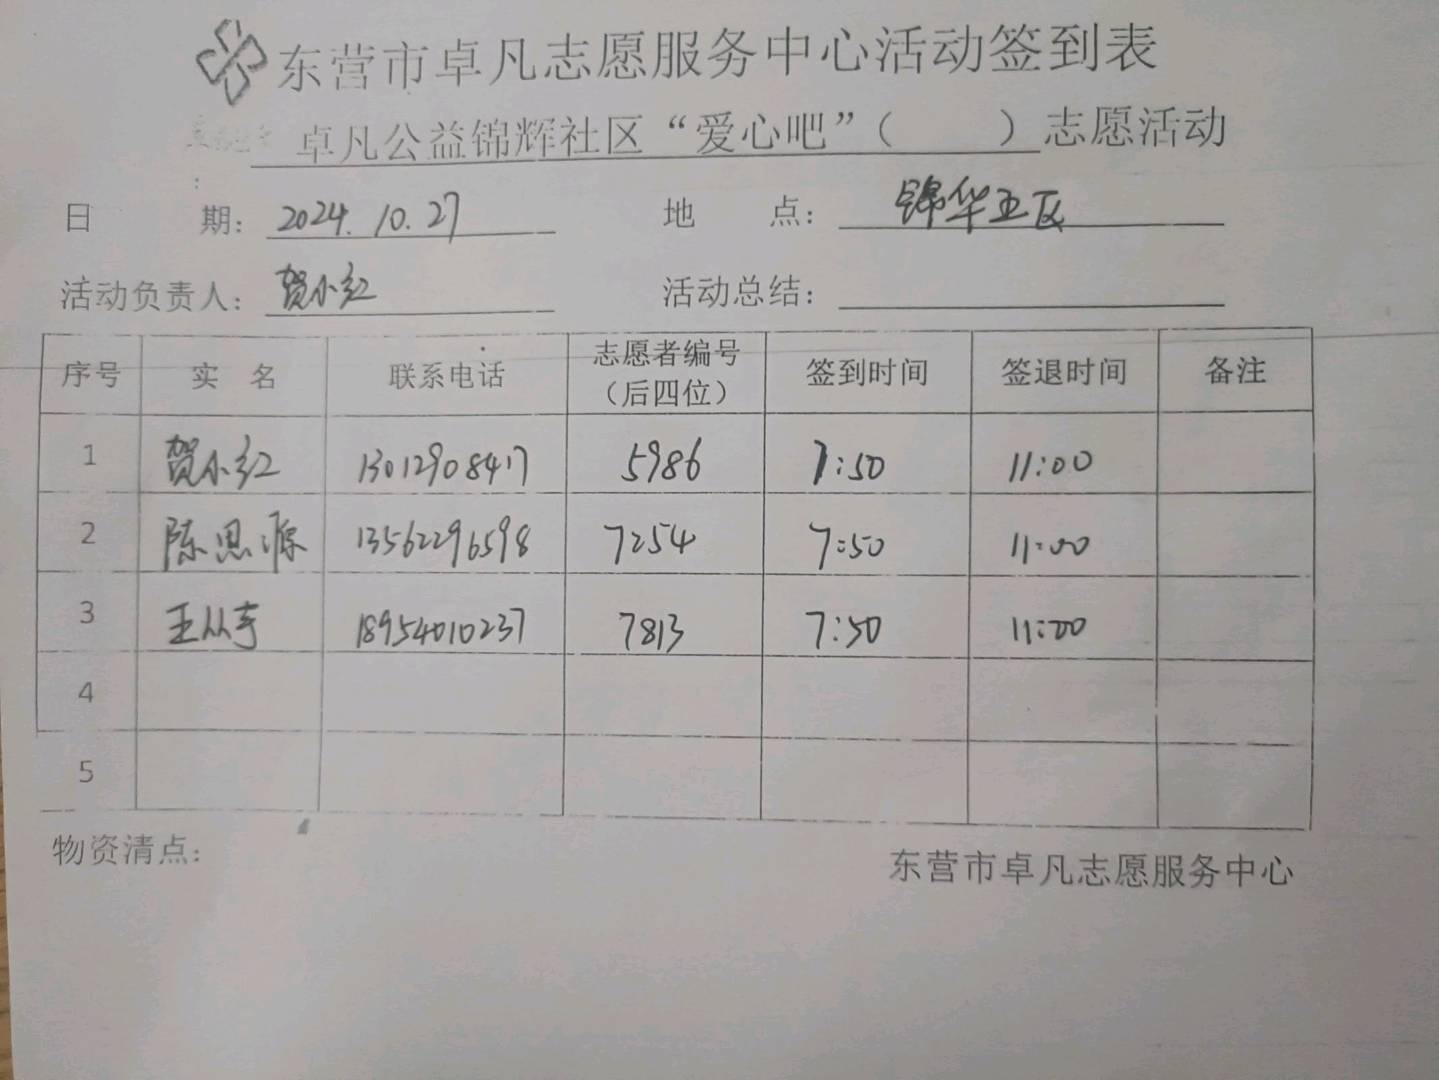 东营市卓凡志愿服务中心活动签到表
卓凡公益锦辉社区“爱心吧”（ ）志愿活动
日 期：2024.10.27 地 点：锦华五区
活动负责人：贺小红 活动总结：
序号 实 名 联系电话 志愿者编号（后四位） 签到时间 签退时间 备注
1 贺小红 13012908417 5986 7:50 11:00
2 陈思源 13562296598 7254 7:50 11:00
3 王从宇 18954010237 7813 7:50 11:00
4
5
物资清点：
东营市卓凡志愿服务中心